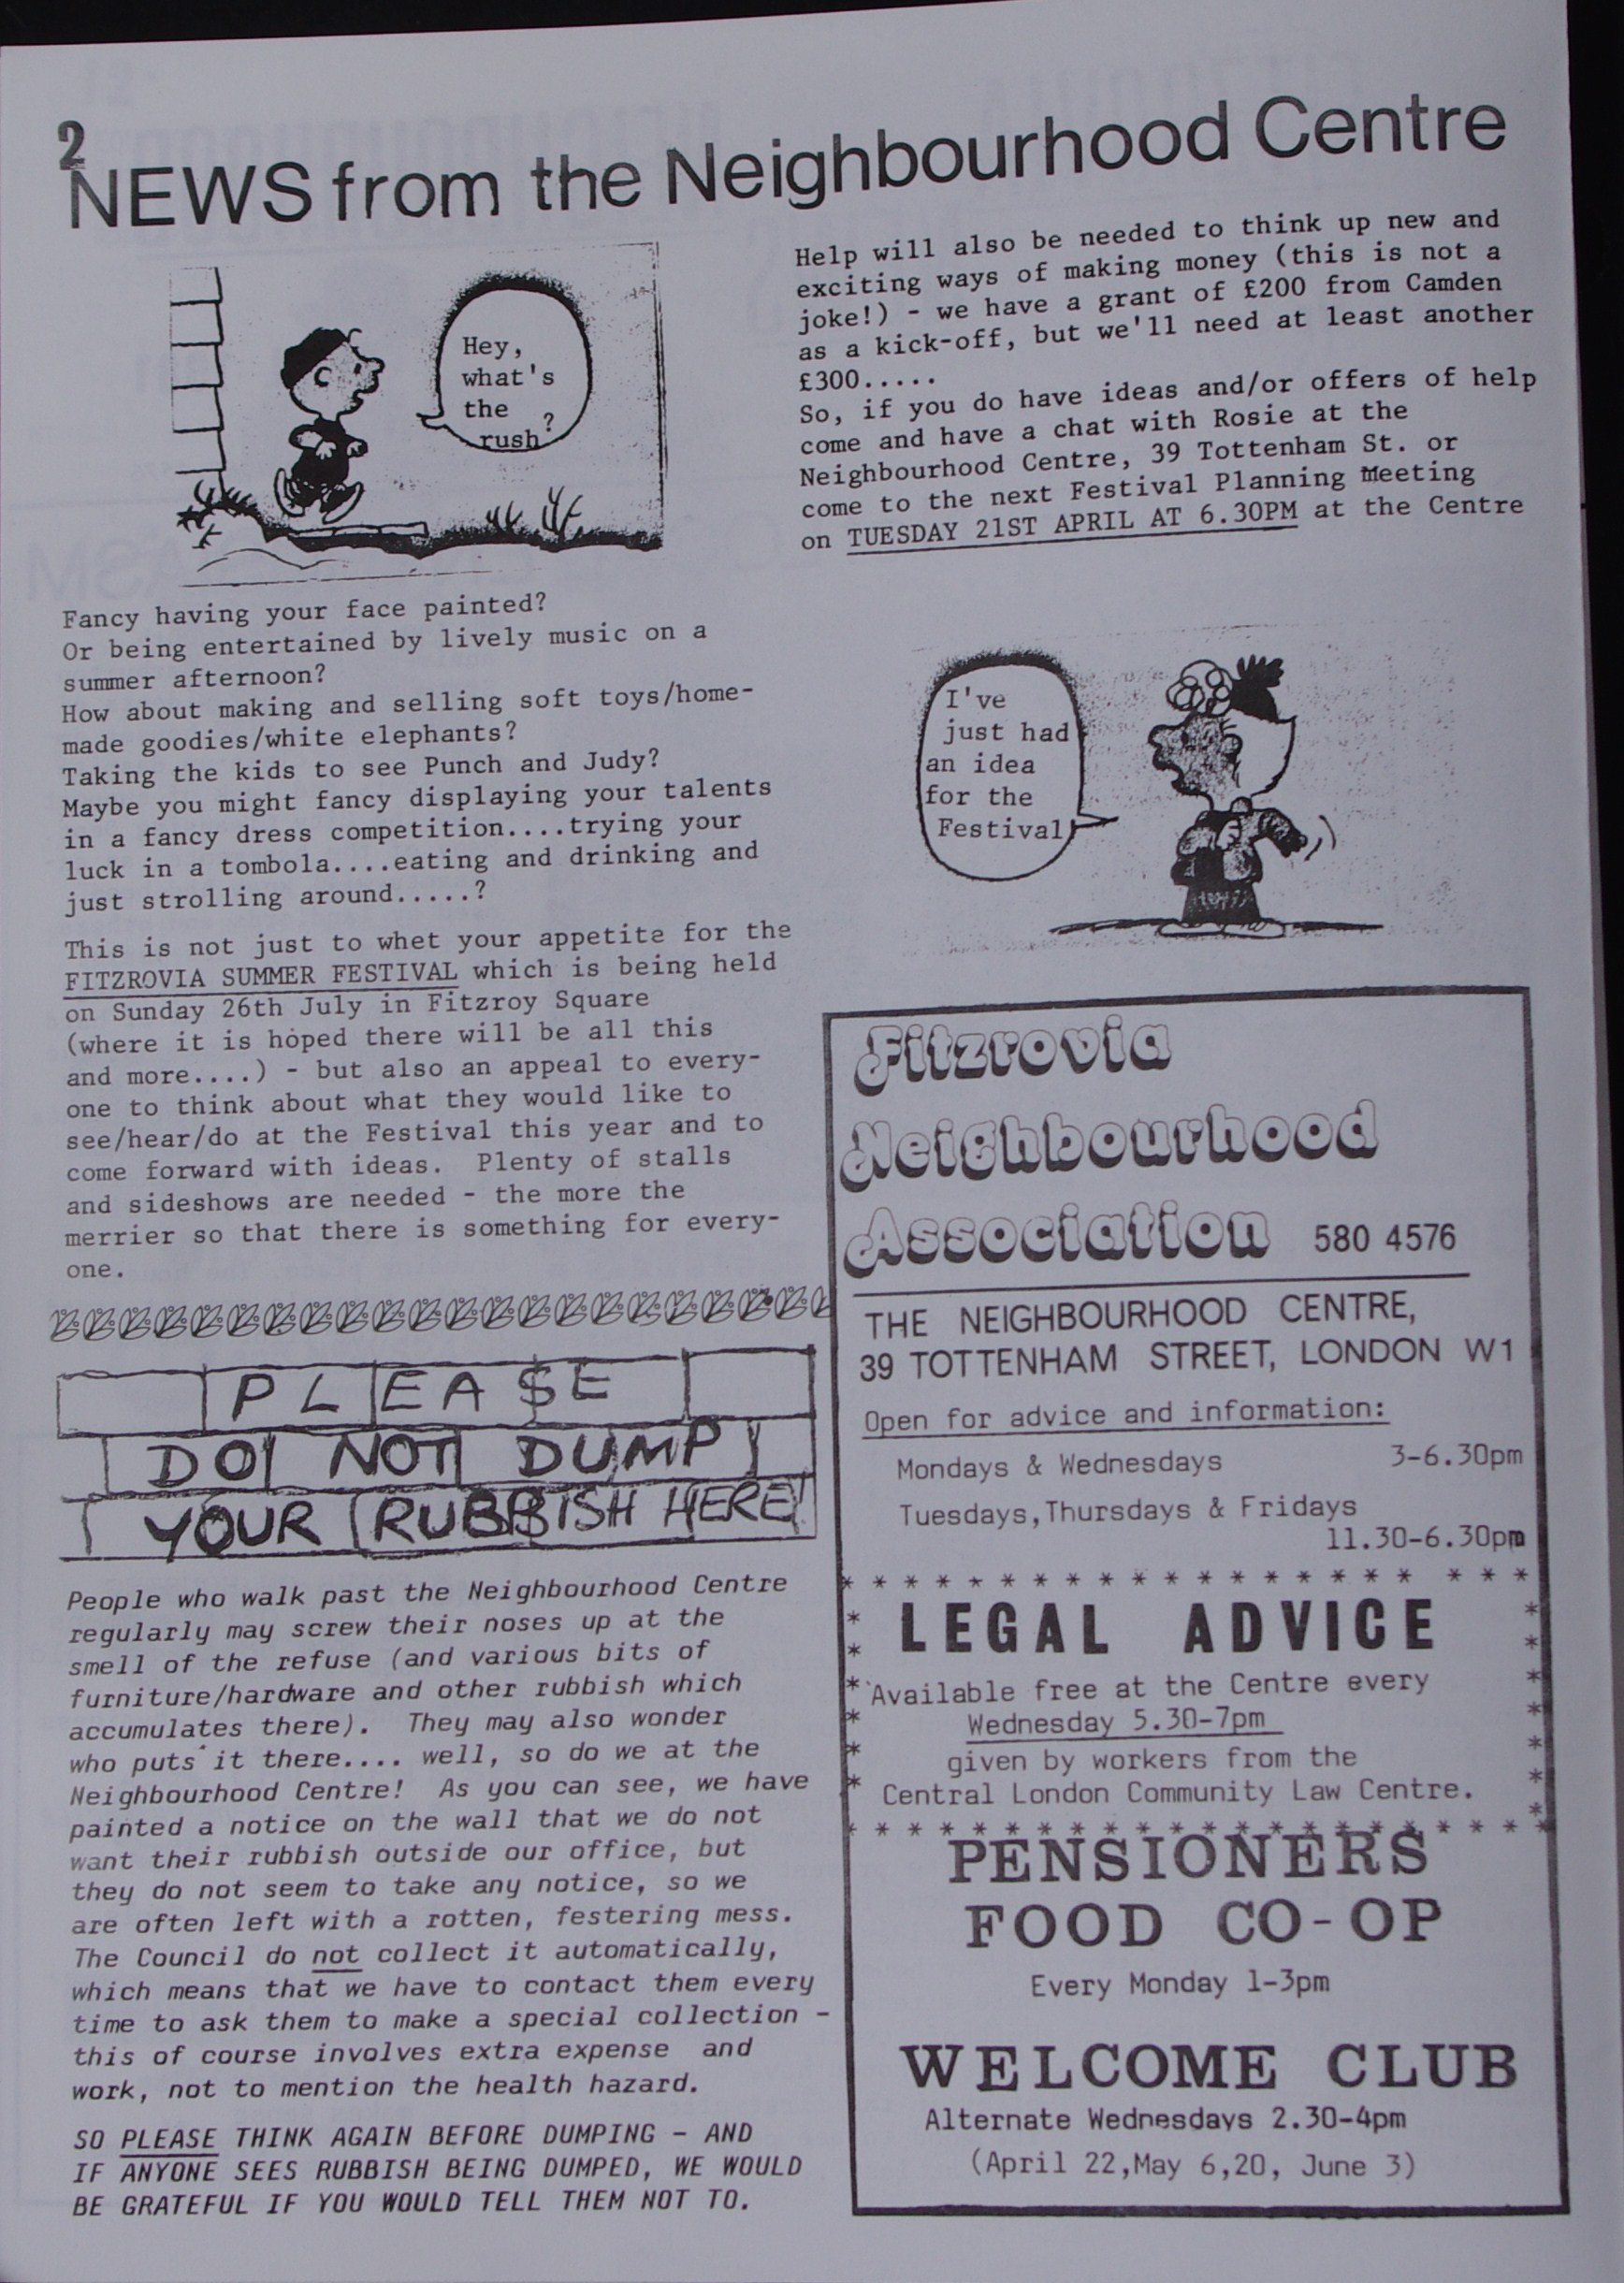 2
NEWS from the Neighbourhood Centre
Hey,
what's
the
rush?
Fancy having your face painted?
Or being entertained by lively music on a
summer afternoon?
How about making and selling soft toys/home-
made goodies/white elephants?
Taking the kids to see Punch and Judy?
Maybe you might fancy displaying your talents
in a fancy dress competition....trying your
luck in a tombola....eating and drinking and
just strolling around.....?
This is not just to whet your appetite for the
FITZROVIA SUMMER FESTIVAL which is being held
on Sunday 26th July in Fitzroy Square
(where it is hoped there will be all this
and more....) - but also an appeal to every-
one to think about what they would like to
see/hear/do at the Festival this year and to
come forward with ideas.  Plenty of stalls
and sideshows are needed - the more the
merrier so that there is something for every-
one.
PLEASE
DO NOT DUMP
YOUR RUBBISH HERE!
People who walk past the Neighbourhood Centre
regularly may screw their noses up at the
smell of the refuse (and various bits of
furniture/hardware and other rubbish which
accumulates there).  They may also wonder
who puts it there.... well, so do we at the
Neighbourhood Centre!  As you can see, we have
painted a notice on the wall that we do not
want their rubbish outside our office, but
they do not seem to take any notice, so we
are often left with a rotten, festering mess.
The Council do not collect it automatically,
which means that we have to contact them every
time to ask them to make a special collection -
this of course involves extra expense and
work, not to mention the health hazard.
SO PLEASE THINK AGAIN BEFORE DUMPING - AND
IF ANYONE SEES RUBBISH BEING DUMPED, WE WOULD
BE GRATEFUL IF YOU WOULD TELL THEM NOT TO.
Help will also be needed to think up new and
exciting ways of making money (this is not a
joke!) - we have a grant of £200 from Camden
as a kick-off, but we'll need at least another
£300.....
So, if you do have ideas and/or offers of help
come and have a chat with Rosie at the
Neighbourhood Centre, 39 Tottenham St. or
come to the next Festival Planning Meeting
on TUESDAY 21ST APRIL AT 6.30PM at the Centre
I've
just had
an idea
for the
Festival
Fitzrovia
Neighbourhood
Association 580 4576
THE NEIGHBOURHOOD CENTRE,
39 TOTTENHAM STREET, LONDON W1
Open for advice and information:
Mondays & Wednesdays 3-6.30pm
Tuesdays,Thursdays & Fridays
11.30-6.30pm
LEGAL ADVICE
Available free at the Centre every
Wednesday 5.30-7pm
given by workers from the
Central London Community Law Centre.
PENSIONERS
FOOD CO-OP
Every Monday 1-3pm
WELCOME CLUB
Alternate Wednesdays 2.30-4pm
(April 22,May 6,20, June 3)